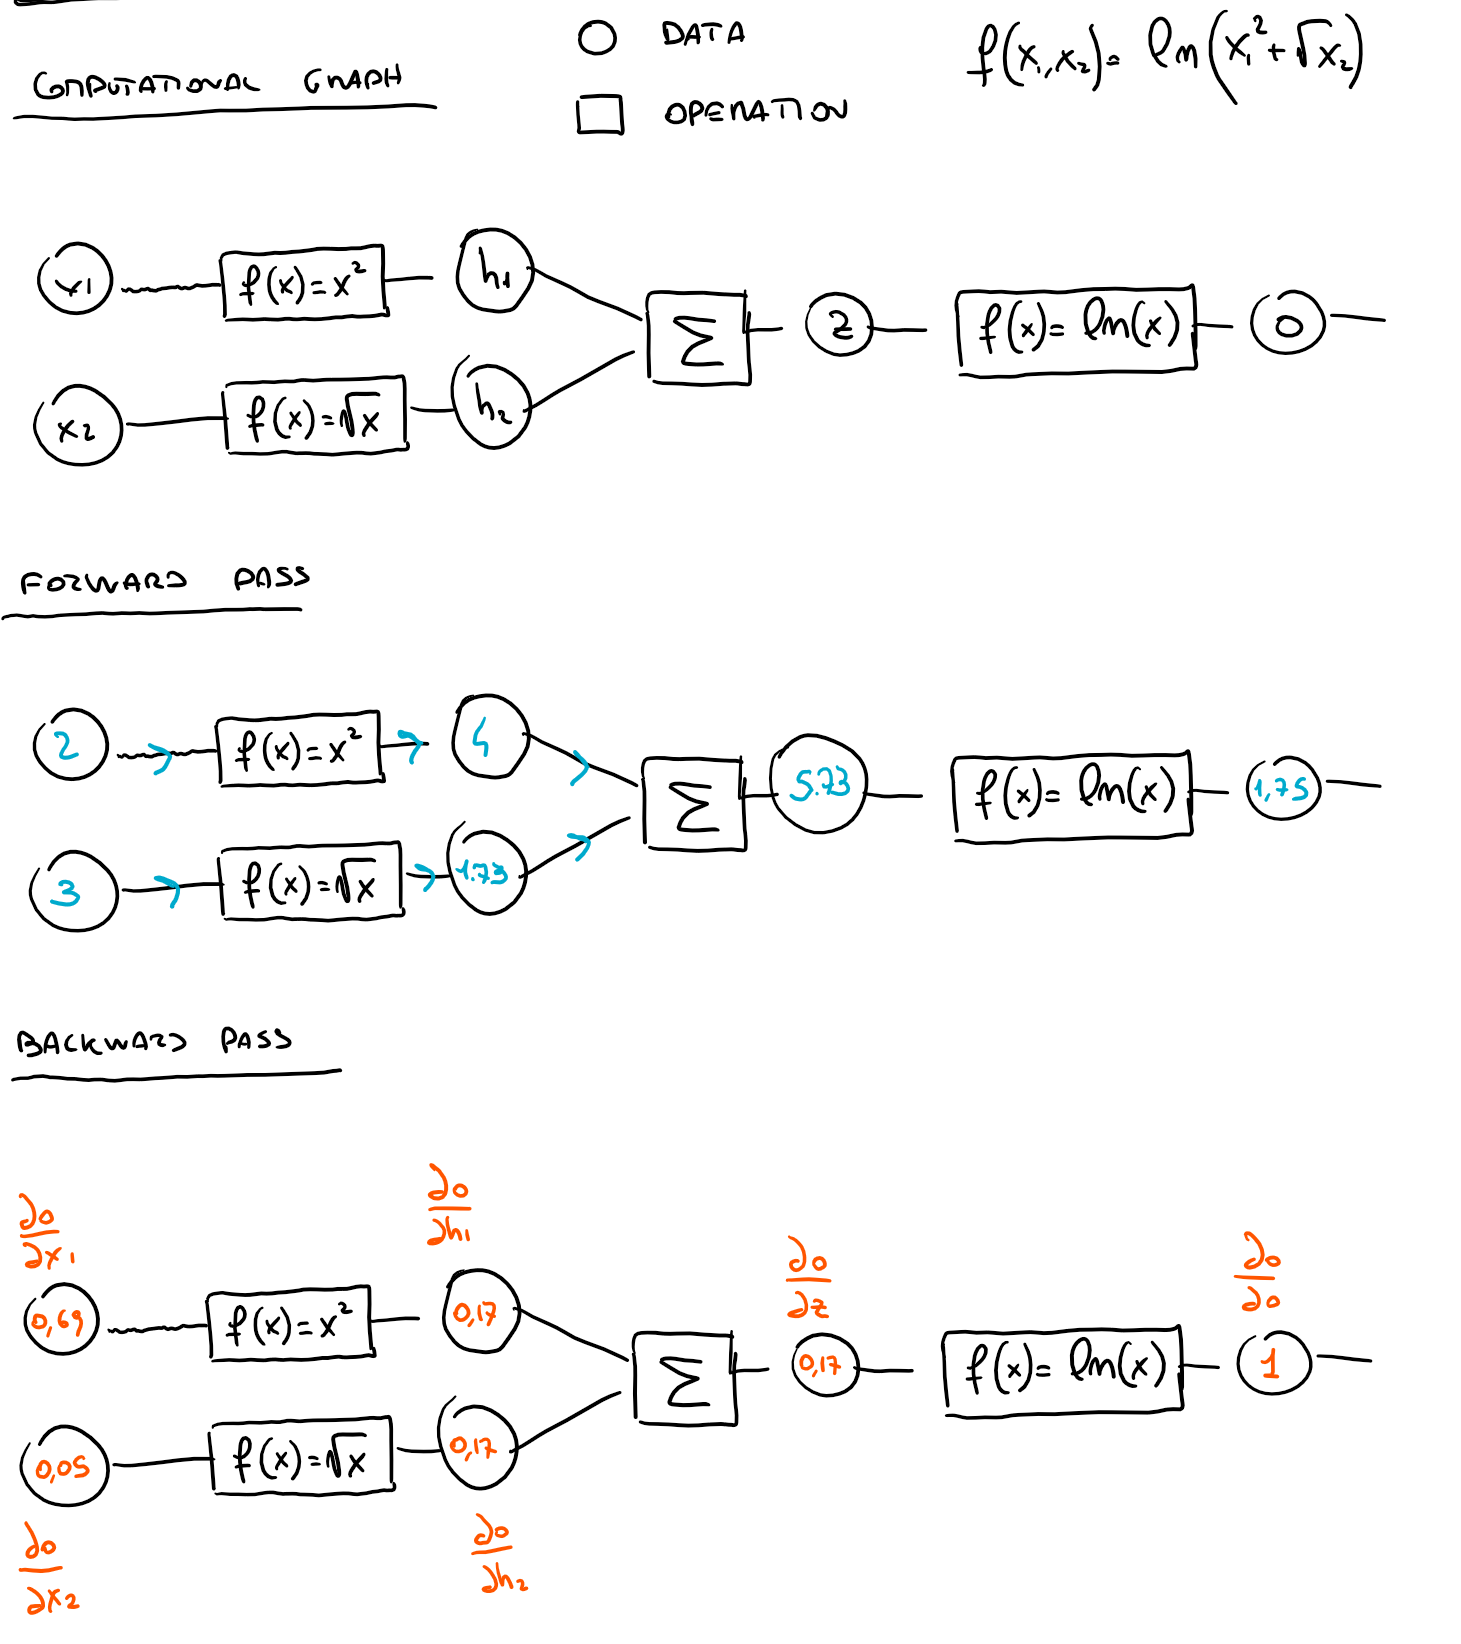 COMPUTATIONAL GRAPH
DATA
OPERATION
f(x₁,x₂)= ln(x₁²+√x₂)
x1
f(x)=x²
h₁
x2
f(x)=√x
h₂
Σ
z
f(x)= ln(x)
o
FORWARD PASS
2
f(x)=x²
4
3
f(x)=√x
1.73
Σ
5.73
f(x)= ln(x)
1,75
BACKWARD PASS
∂o/∂x₁
0,69
f(x)=x²
∂o/∂h₁
0,17
0,05
∂o/∂x₂
f(x)=√x
0,17
∂o/∂h₂
Σ
∂o/∂z
0,17
f(x)= ln(x)
∂o/∂o
1